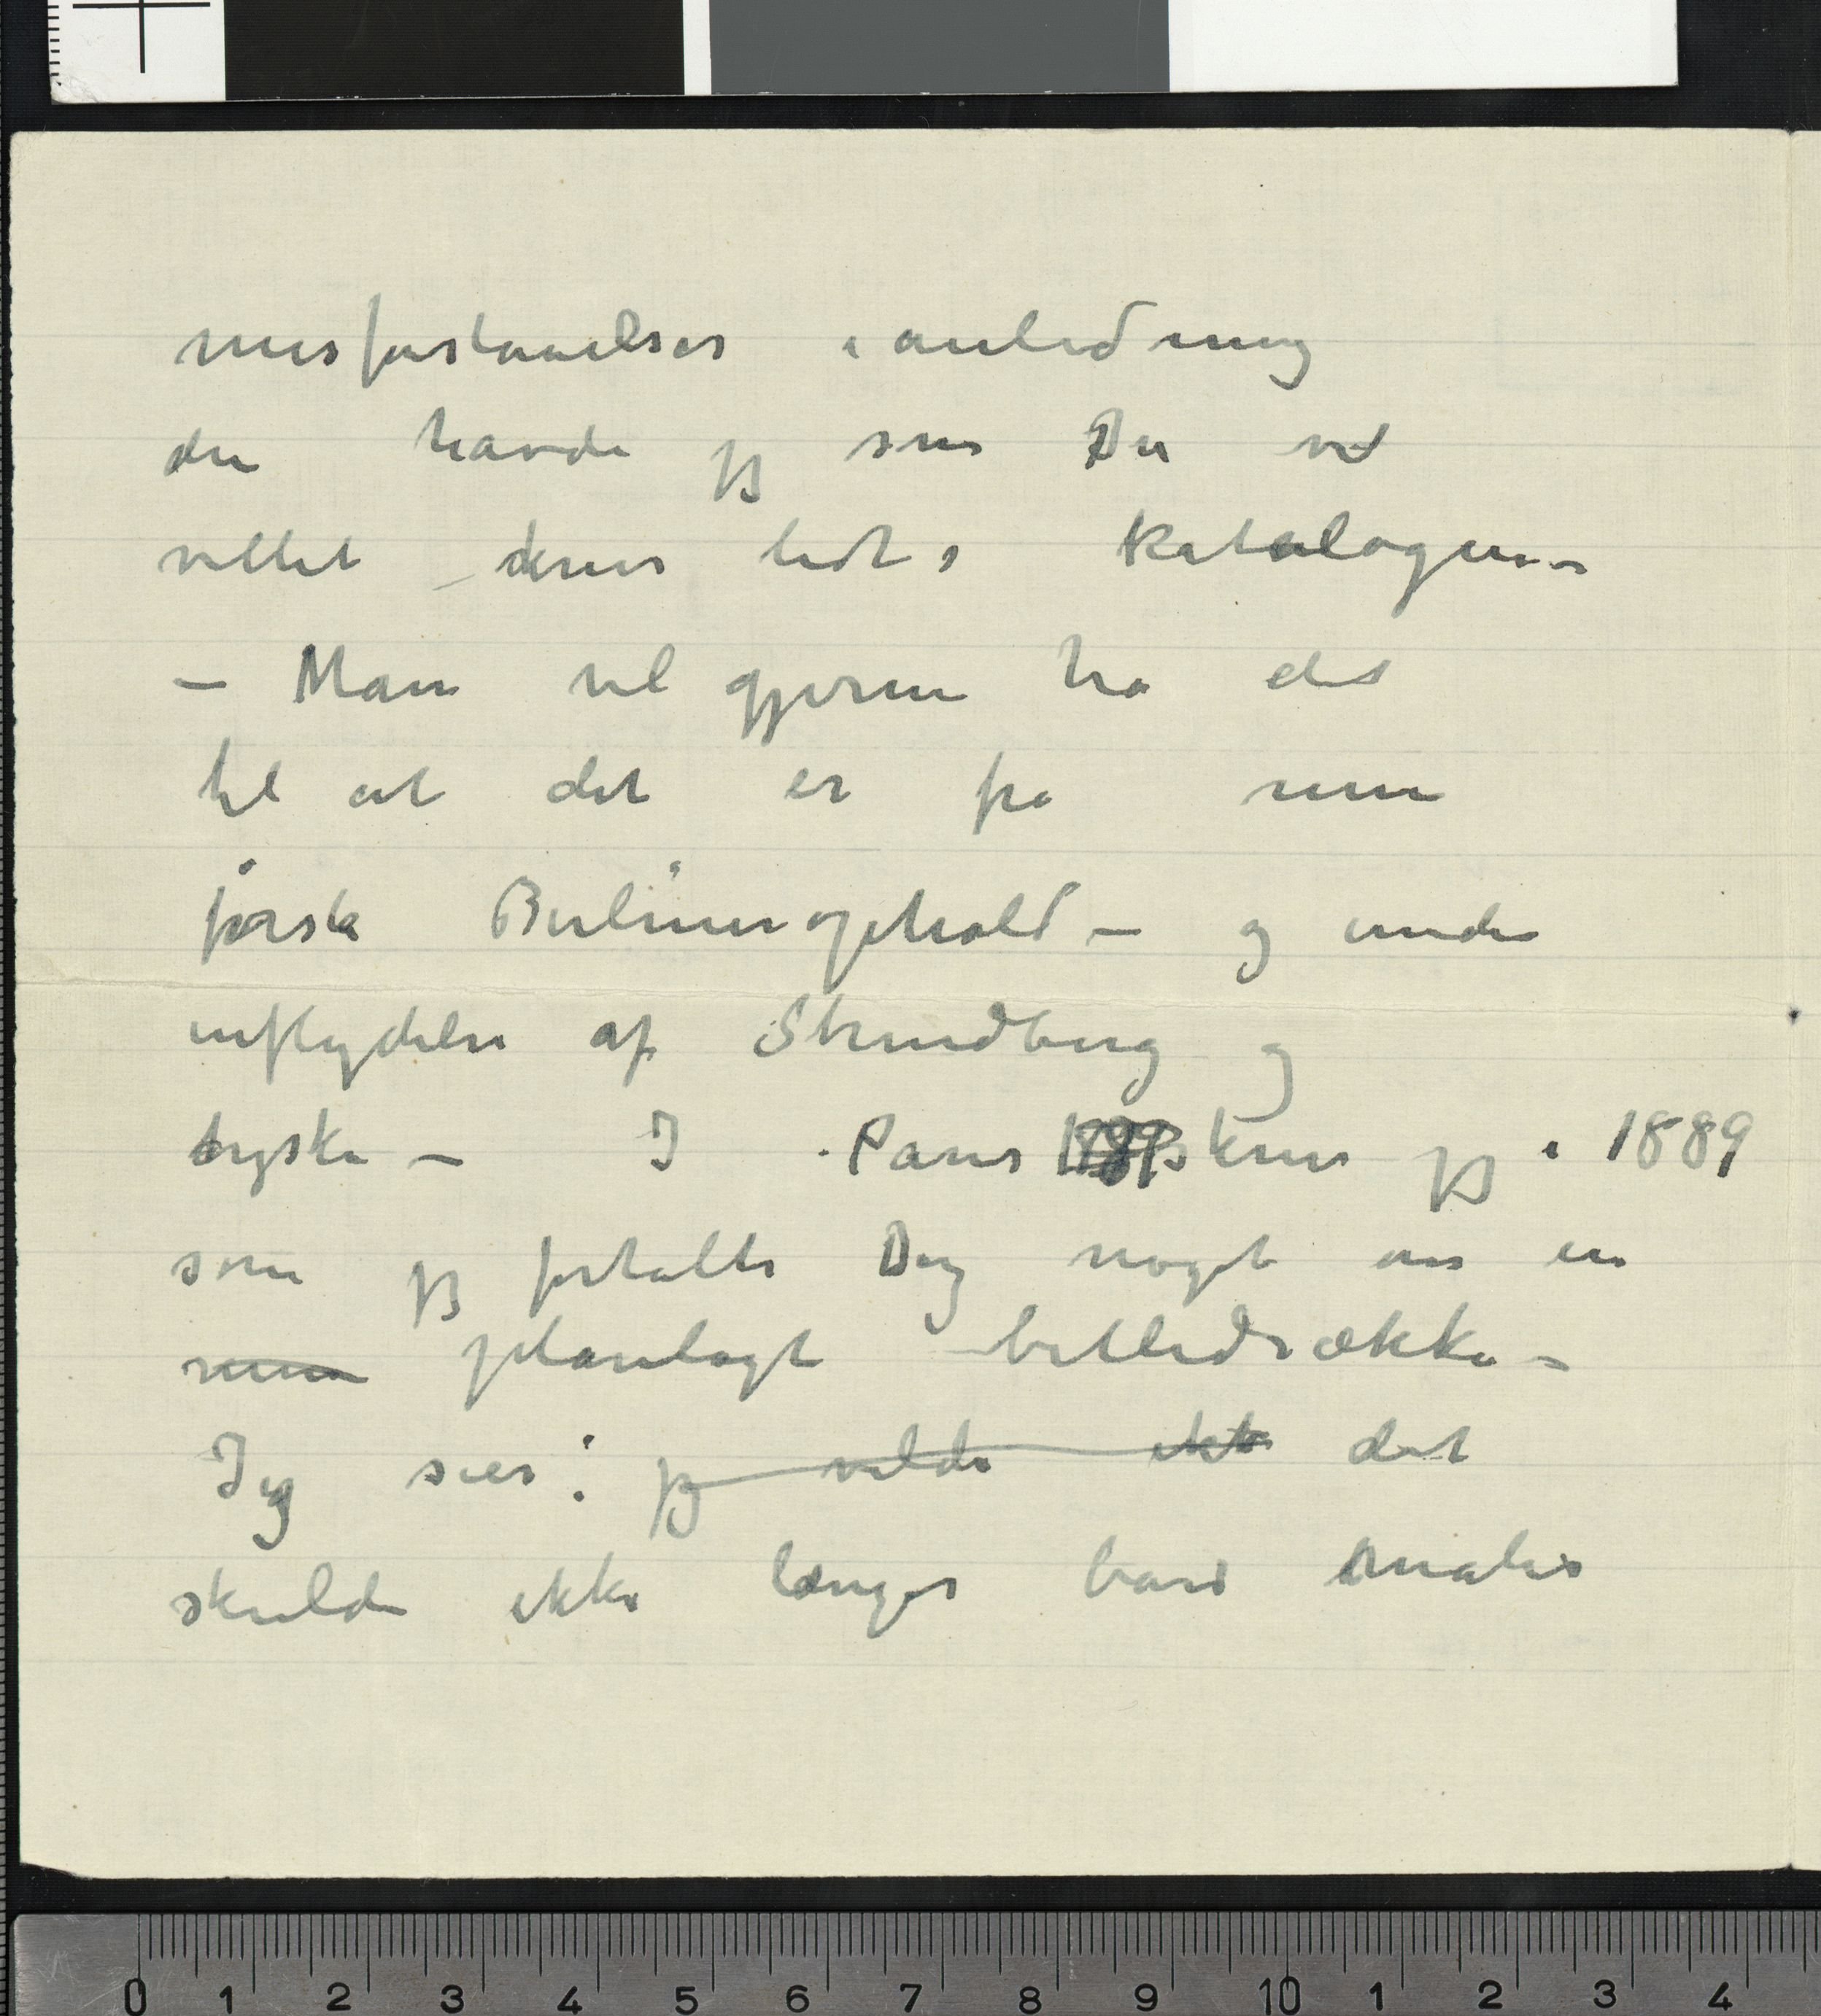 misforstaaelser i anledning
den havde jeg som Du ved
villet skrive lidt i katalogen –
– Man vil gjerne ha det
til at det er fra min
første Berlineropphold – og under
inflydelse af Strindberg og
tyske – I Paris skrev jeg i 1889
som jeg fortalte Dig noget om en
min planlagt billedrække –
Jeg sier: jeg vilde ikke det
skulde ikke længer bare males
0 1 2 3 4 5 6 7 8 9 10 1 2 3 4